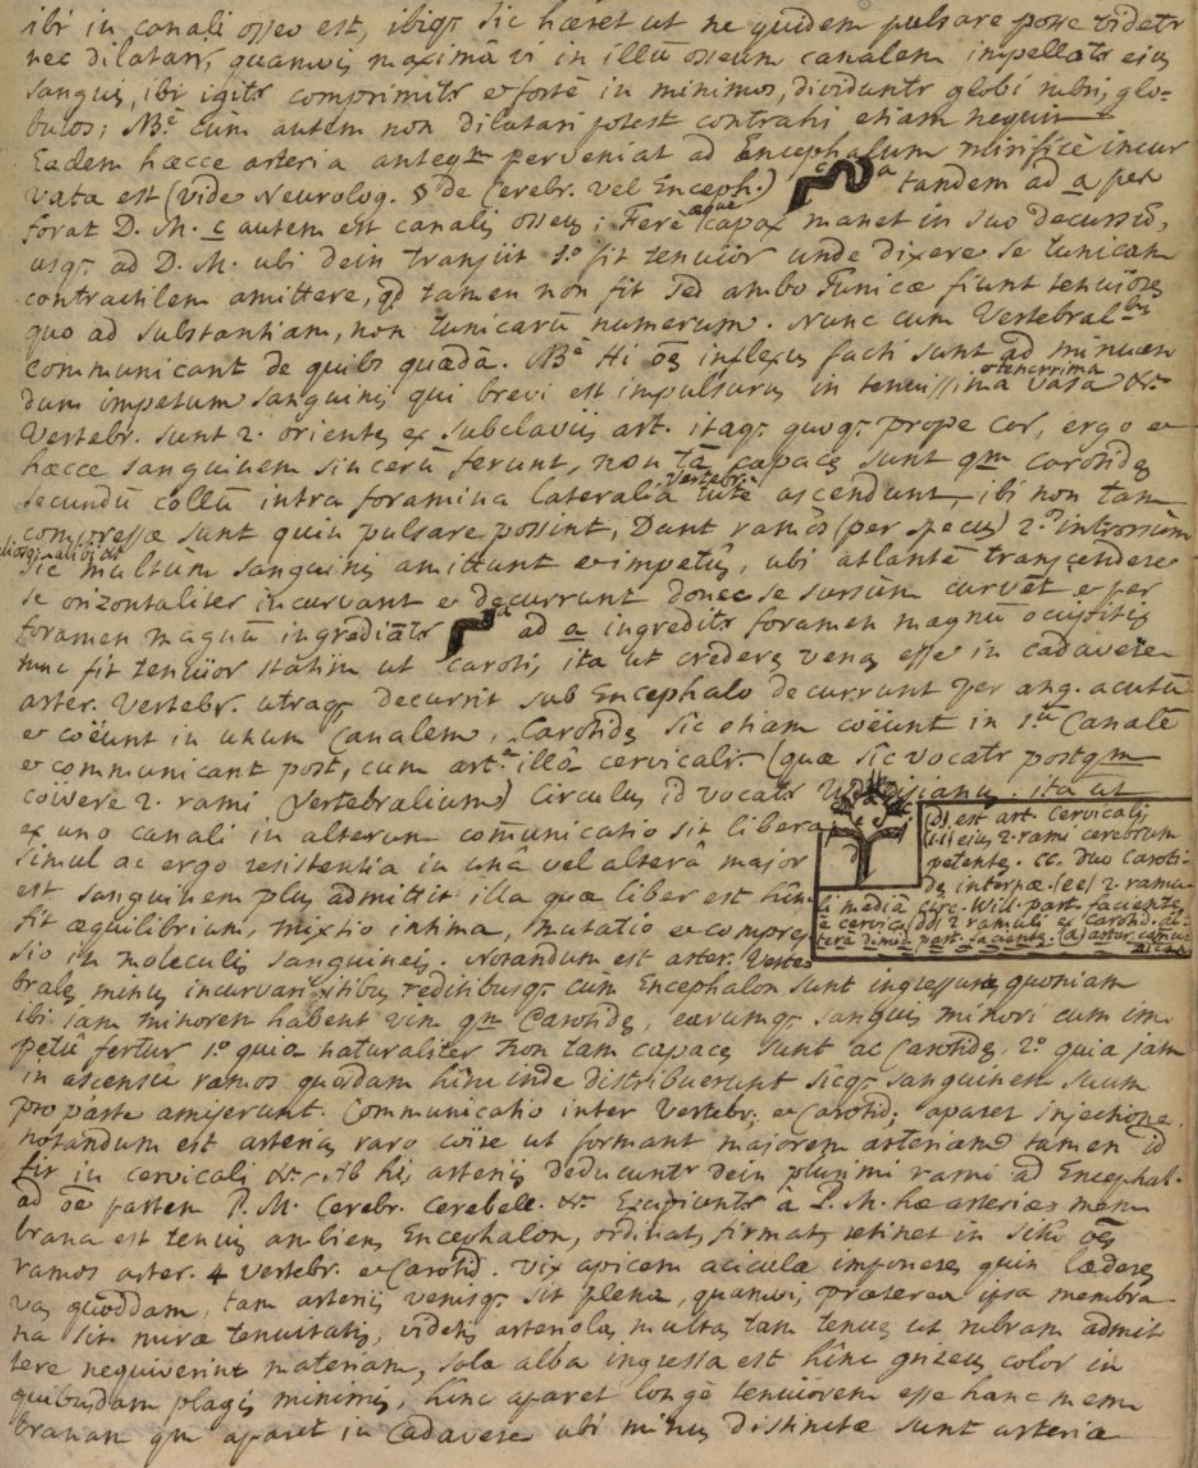 ibi in canali osseo est, ibiq; sic hæret ut ne quidem pulsare posse videtr
nec dilatari, quamvis maximâ vi in illū osseum canalem impellatr ejus
sanguis, ibi igitr comprimitr & forte in minimos, dividuntr globi rubri, glo-
bulos; NBe cum autem non dilatari potest contrahi etiam nequit
Eadem hæcce arteria anteqm perveniat ad Encephalum mirificè incur
vata est (vide Neurolog. § de Cerebr. vel Enceph.) c a tandem ad a per
forat D. M. c autem est canalis osseus; Ferè æque capax manet in suo decursu,
usq; ad D. M. ubi dein transiit 1.o fit tenuior unde dixere se tunicam
contractilem amittere, qd tamen non fit sed ambo Tunicæ fiunt tenuiores
quo ad substantiam, non tunicarū numerum. Nunc cum Vertebralbus
communicant de quibs quædā. NBe Hi oēs inflexus facti sunt ad minuen
dum impetum sanguinis qui brevi est impulsurus in tenuissima & tenerrima vasa &c.
Vertebr. sunt 2. orientes ex subclaviis art. itaq; quoq; prope Cor, ergo &
hæcce sanguinem sincerū ferunt, non tā capaces sunt qm carotides
secundū collū intra foramina lateralia vertebr. tutè ascendunt, ibi non tam
compressæ sunt quin pulsare possint, Dant ramos (per specus) 2.os introrsum
aliosq; alibi &c
sic multum sanguinis amittunt & impetûs, ubi atlantē transcendere
se orizontaliter incurvant & decurrunt donec se sursum curvēt & per
foramen magnū ingrediātr a ad a ingreditr foramen magnū occipitis
nunc fit tenuior statim ut caroti, ita ut crederes venas esse in cadavere
arter. Vertebr. utraq; decurrit sub Encephalo decurrunt per ang. acutū
& coëunt in unum Canalem, Carotides sic etiam coëunt in 1.um Canalē
& communicant post, cum art.a illâ cervicali. (quæ sic vocatr postqm
coivere 2. rami Vertebralium) Circulus id vocatr Willisianus. ita ut
ex uno canali in alterum com̄unicatio sit libera
simul ac ergo resistentia in unâ vel alterâ major
est sanguinem plus admittit illa quæ liber est hinc
fit æquilibrium, mixtio intima, mutatio & compres
sio in moleculis sanguineis. Notandum est arter. Verte
(D) est art. Cervicalis
(ii) ejus 2. rami cerebrum
petentes. cc. duo Caroti-
des internæ. (ee) 2. ramu
li mediā circ. Will. part. facientes
è cervica. (dd) 2 ramuli ex Carotid. al-
tera dimid. part. facientes. (a) arter com̄u
nicans
brales minus incurvari itibus reditibusq; cùm Encephalon sunt ingressuræ quoniam
ibi jam minorem habent vim qm Carotides, earumq; sanguis minori cum im
petū fertur 1.o quia naturaliter non tam capaces sunt ac Carotides. 2.o quia jam
in ascensu ramos quosdam hinc inde distribuerunt sicq; sanguinem suum
pro parte amiserunt. Communicatio inter Vertebr; & Carotid; aparet injectione.
notandum est arterias raro coire ut formant majorem arteriam tamen id
fit in cervicali &c. Ab his arteriis deducuntr dein plurimi rami ad Encephal.
ad oē partem P. M. Cerebr. Cerebell. &c. Excipiuntr à P. M. hæ arteriæ mem
brana est tenuis ambiens Encephalon, ordinat, firmat, retinet in situ oēs
ramos arter. 4 Vertebr. & Carotid. vix apicem aciculæ imponeres quin læderes
vas quoddam, tam arteriis venisq; sit plena, quamvis præterea ipsa membra
na sit miræ tenuitatis, videtis arteriolas multas tam tenues ut rubram admit
tere nequiverint materiam, sola alba ingressa est hinc griseus color in
quibusdam plagis minimis, hinc aparet longè tenuiorem esse hanc mem
branam qm aparet in Cadavere ubi minus distinctæ sunt arteriæ